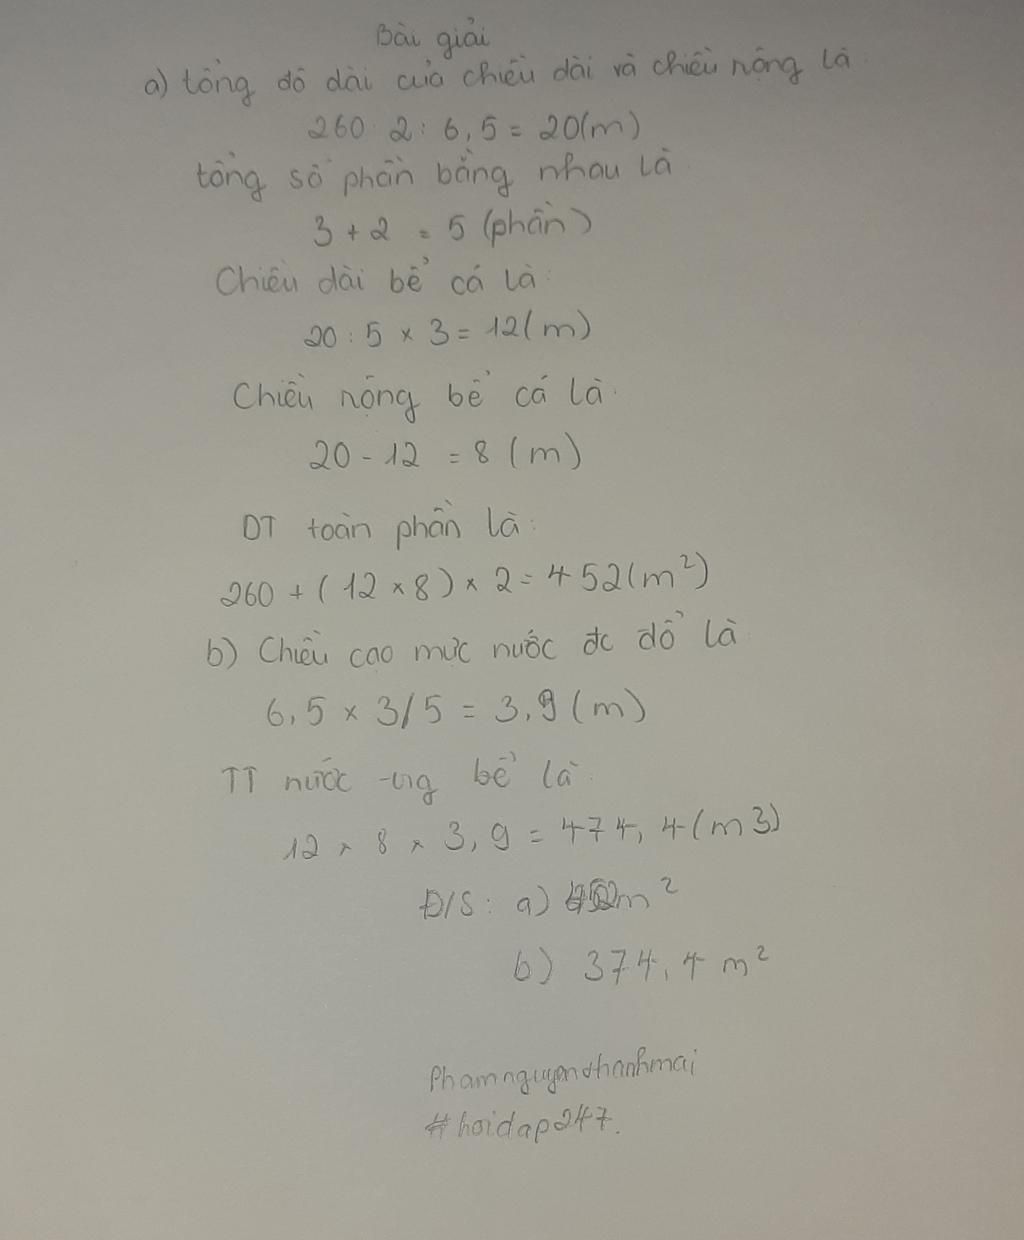 Bài giải
a) tổng độ dài của chiều dài và chiều rộng là
260 : 2 : 6,5 = 20(m)
tổng số phần bằng nhau là
3 + 2 = 5 (phần)
Chiều dài bể cá là:
20 : 5 × 3 = 12(m)
Chiều rộng bể cá là:
20 - 12 = 8 (m)
DT toàn phần là:
260 + (12 × 8) × 2 = 452(m²)
b) Chiều cao mực nước đc đổ là
6,5 × 3/5 = 3,9 (m)
TT nước bể là:
12 × 8 × 3,9 = 474,4(m3)
Đ/S: a) 452m²
b) 374,4 m²
Phamnguyenthanhmai
#hoidap247.